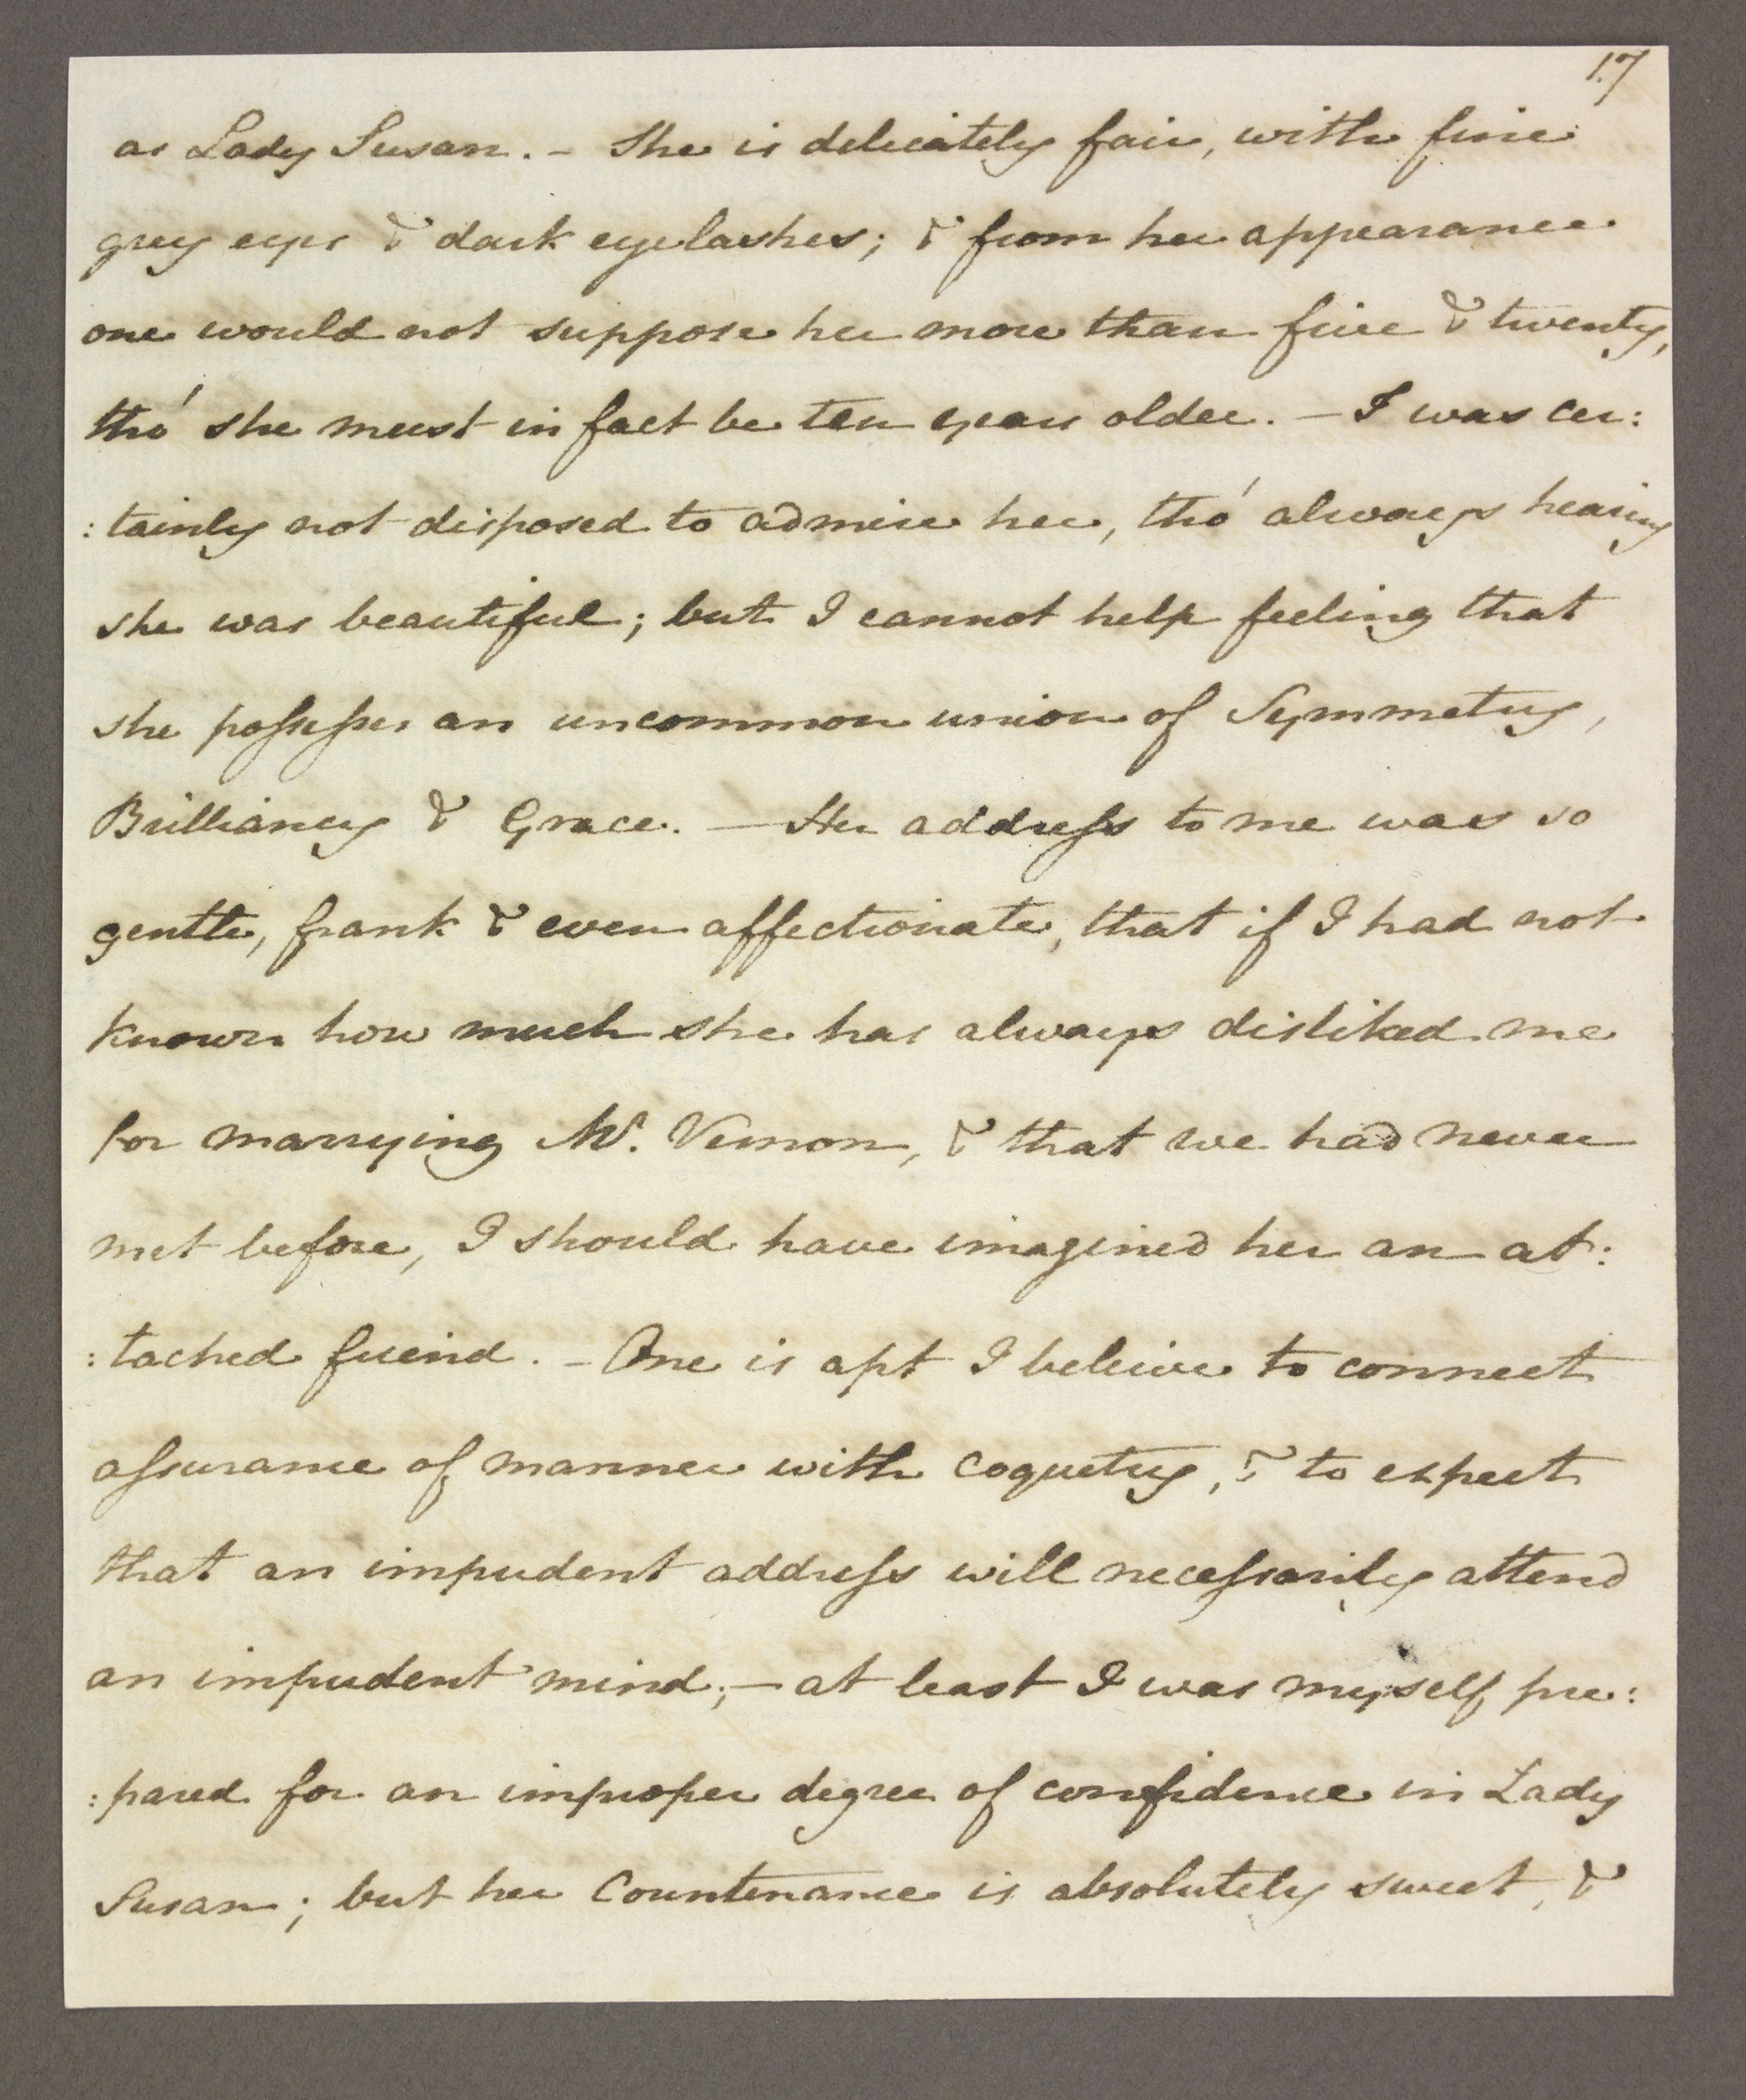 17
as Lady Susan. - She is delicately fair, with fine
grey eyes & dark eyelashes; & from her appearance
one would not suppose her more than five & twenty,
tho' she must in fact be ten years older. - I was cer:
:tainly not disposed to admire her, tho' always hearing
she was beautiful; but I cannot help feeling that
she possesses an uncommon union of Symmetry,
Brilliancy & Grace. - Her address to me was so
gentle, frank & even affectionate, that if I had not
known how much she has always disliked me
for marrying Mr. Vernon, & that we had never
met before, I should have imagined her an at:
:tached freind. - One is apt I beleive to connect
assurance of manner with coquetry, & to expect
that an impudent address will necessarily attend
an impudent mind; - at least I was myself pre:
:pared for an improper degree of confidence in Lady
Susan; but her Countenance is absolutely sweet, &